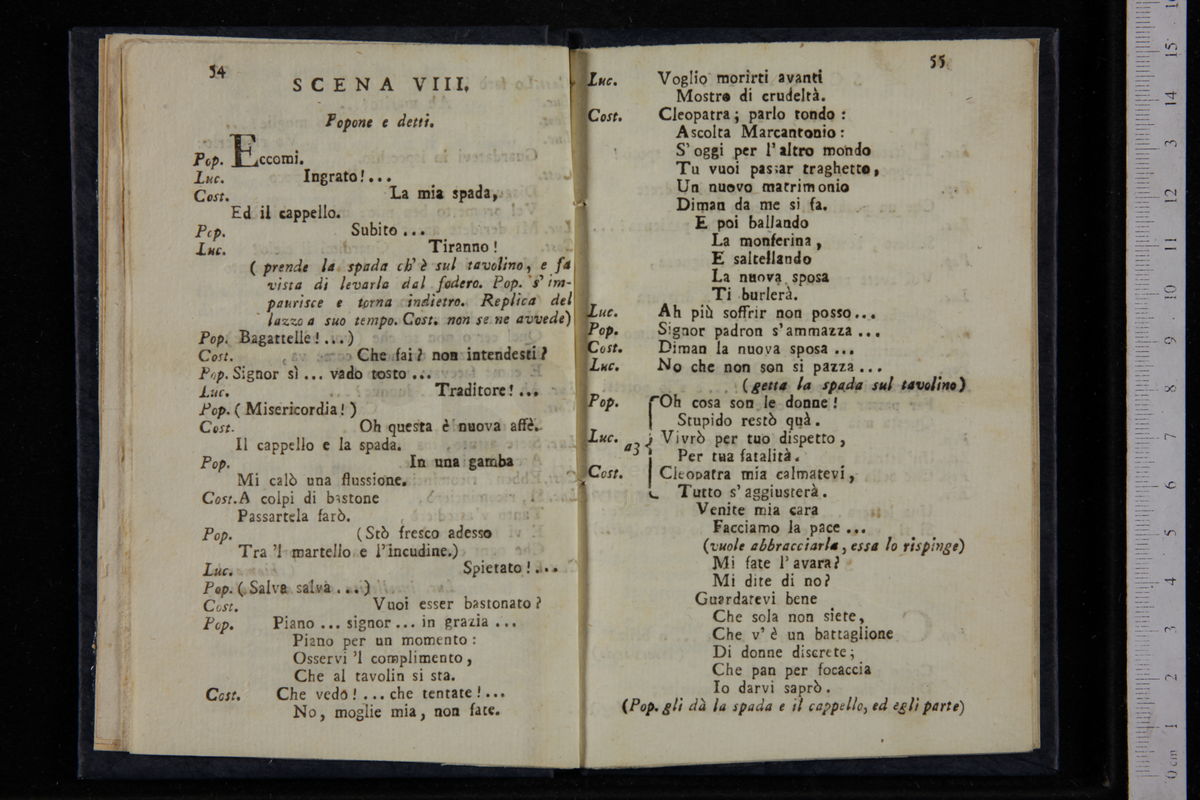 54
SCENA VIII.
Popone e detti.
Pop. Eccomi.
Luc. Ingrato!...
Cost. La mia spada,
Ed il cappello.
Pop. Subito ...
Luc. Tiranno!
( prende la spada ch' è sul tavolino, e fa
vista di levarla dal fodero. Pop. s' im-
paurisce e torna indietro. Replica del
lazzo a suo tempo. Cost. non se ne avvede)
Pop. Bagattelle! ...)
Cost. Che fai? non intendesti?
Pop. Signor sì ... vado tosto ...
Luc. Traditore! ...
Pop. ( Misericordia! )
Cost. Oh questa è nuova affè.
Il cappello e la spada.
Pop. In una gamba
Mi calò una flussione.
Cost. A colpi di bastone
Passartela farò.
Pop. (Stò fresco adesso
Tra 'l martello e l'incudine.)
Luc. Spietato! ...
Pop. ( Salva salva ...)
Cost. Vuoi esser bastonato?
Pop. Piano ... signor ... in grazia ...
Piano per un momento:
Osservi 'l complimento,
Che al tavolin si sta.
Cost. Che vedo! ... che tentate! ...
No, moglie mia, non fate.
55
Luc. Voglio morirti avanti
Mostro di crudeltà.
Cost. Cleopatra; parlo tondo:
Ascolta Marcantonio:
S' oggi per l' altro mondo
Tu vuoi passar traghetto,
Un nuovo matrimonio
Diman da me si fa.
E poi ballando
La monferina,
E saltellando
La nuova sposa
Ti burlerà.
Luc. Ah più soffrir non posso...
Pop. Signor padron s' ammazza ...
Cost. Diman la nuova sposa ...
Luc. No che non son sì pazza ...
(getta la spada sul tavolino)
Pop. Oh cosa son le donne!
Stupido restò quà.
Luc. a3 Vivrò per tuo dispetto,
Per tua fatalità.
Cost. Cleopatra mia calmatevi,
Tutto s' aggiusterà.
Venite mia cara
Facciamo la pace ...
(vuole abbracciarla, essa lo rispinge)
Mi fate l' avara?
Mi dite di no?
Guardatevi bene
Che sola non siete,
Che v' è un battaglione
Di donne discrete;
Che pan per focaccia
Io darvi saprò.
(Pop. gli dà la spada e il cappello, ed egli parte)
0 cm 1 2 3 4 5 6 7 8 9 10 11 12 13 14 15